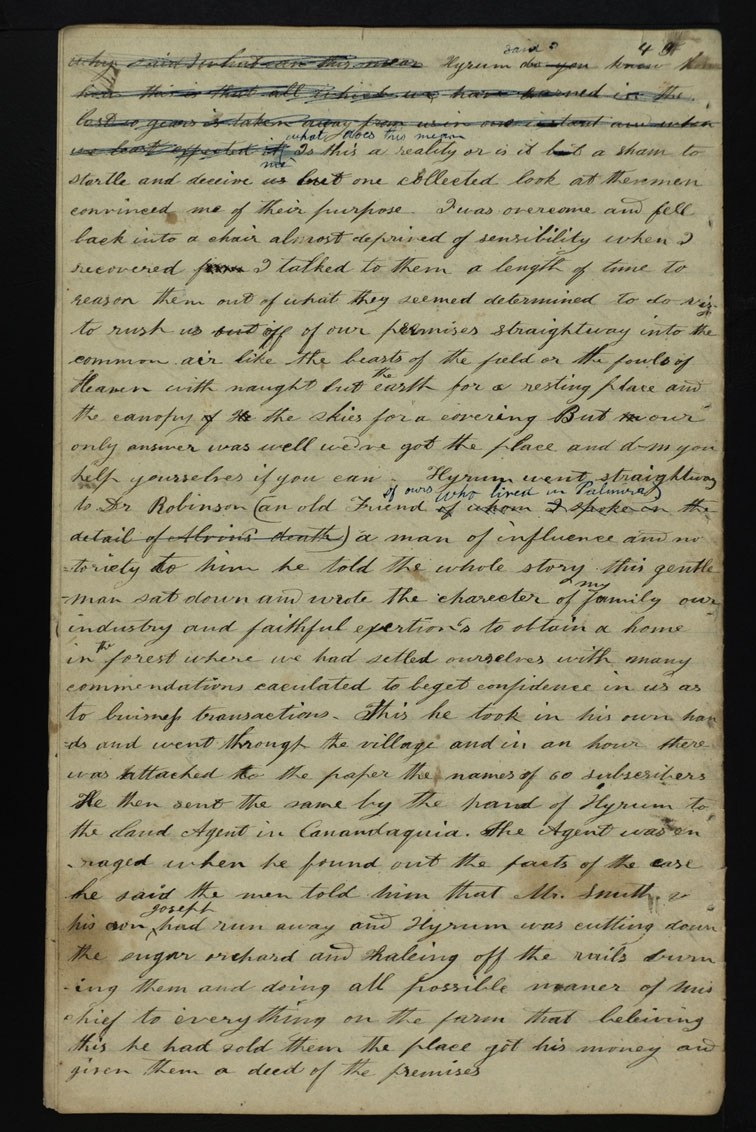 said I 4
why said I what can this mean Hyrum do you know
hear this is that all which we have earned in the
last 10 years is taken away from us in one instant and when
what does this mean
we least expected it, Is this a reality or is it but a sham to
me
startle and deceive us but one collected look at the men
convinced me of their purpose I was overcome and fell
back into a chair almost deprived of sensibility when I
recovered I talked to them a length of time to
reason them out of what they seemed determined to do viz.
to rush us out off of our premises straightway into the
common air like the beasts of the field or the fowls of
the
Heaven with naught but earth for a resting place and
the canopy of the skies for a covering But our
only answer was well we've got the place and d-m you
help yourselves if you can. Hyrum went straightway
of ours who lived in Palmyra)
to Dr Robinson (an old Friend of whom I spoke in the
detail of Alvin's death) a man of influence and no
-toriety to him he told the whole story this gentle
my
-man sat down and wrote the charecter of family our
industry and faithful exertions to obtain a home
the
in forest where we had setled ourselves with many
commendations caculated to beget confidence in us as
to buisness transactions- This he took in his own han
=ds and went through the village and in an hour there
was attached to the paper the names of 60 subscribers
He then sent the same by the hand of Hyrum to
the Land Agent in Canandaquia. The Agent was en
-raged when he found out the facts of the case
he said the men told him that Mr. Smith &
joseph
his son had run away and Hyrum was cutting down
the sugar orchard and haleing off the rails burn
-ing them and doing all possible maner of mis
chief to everything on the farm that beleiving
this he had sold them the place got his money and
given them a deed of the premises